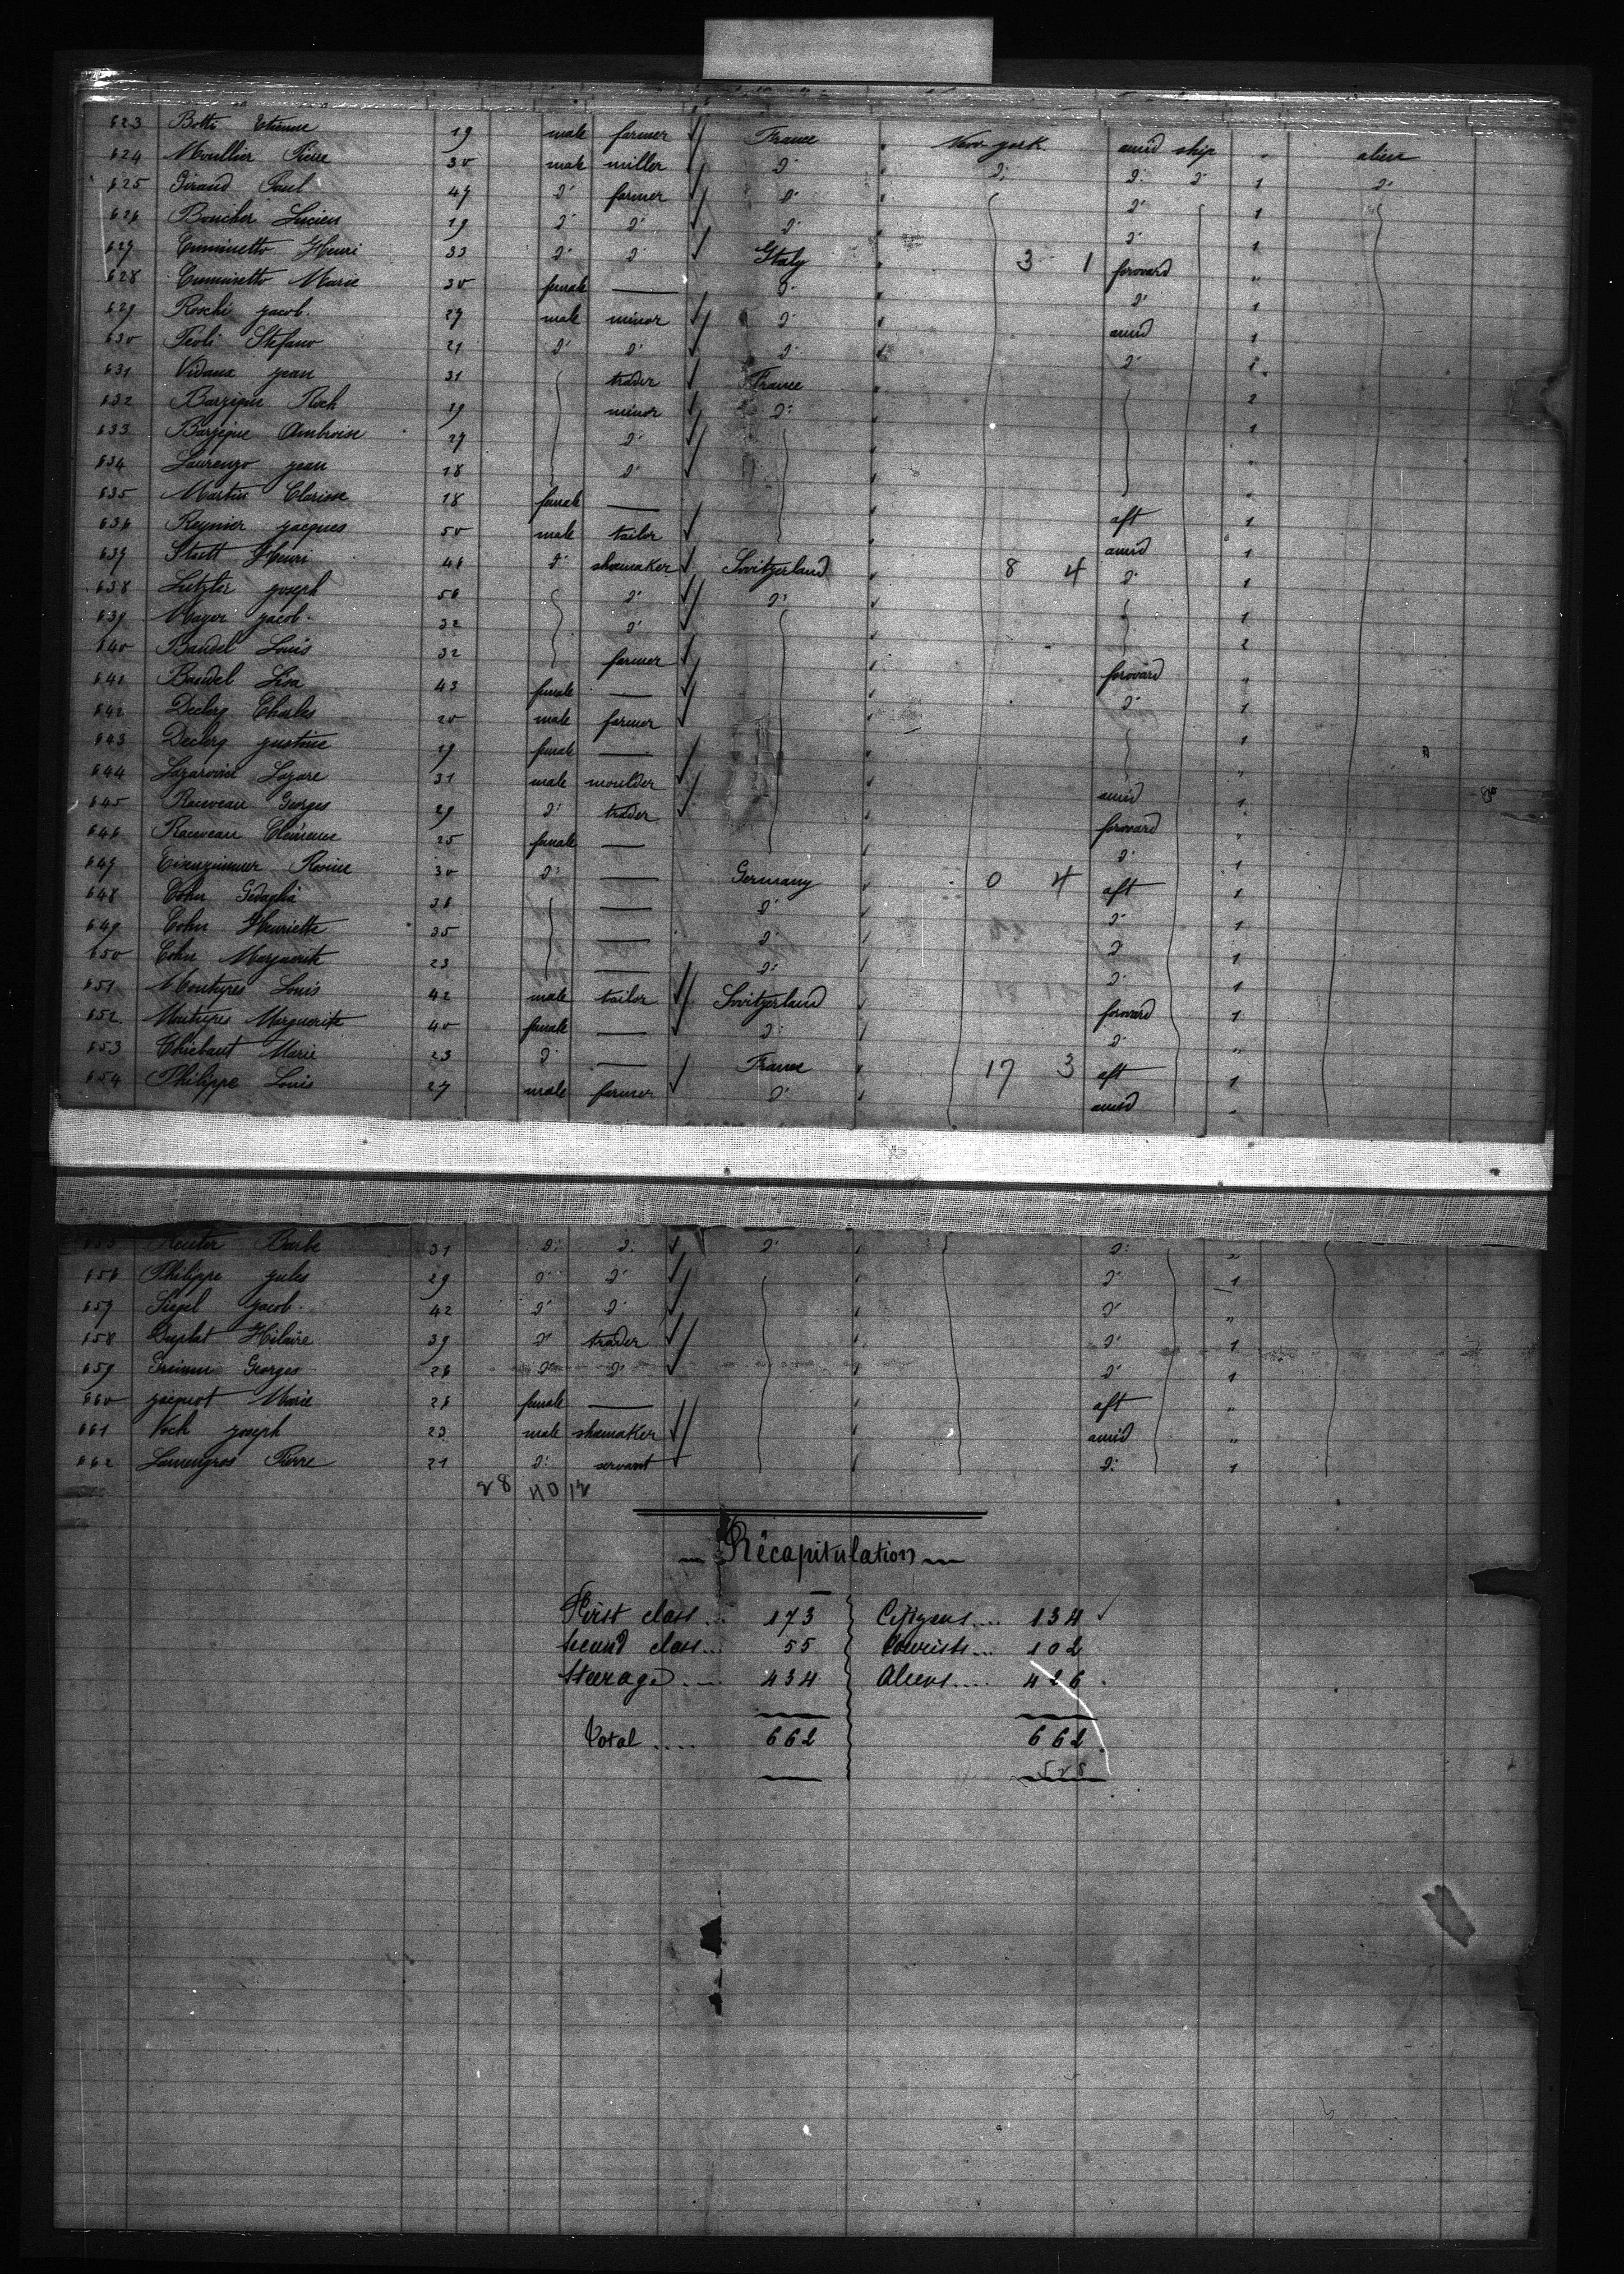 623 Botti Etienne 19 male farmer France New-york amid ship " alien
624 Moullier Pierre 30 male miller d° d° d° d° 1 d°
625 Giraud Paul 47 d° farmer d° d° 1
626 Boucher Lucien 19 d° d° d° d° 1
627 Cuminetto Henri 33 d° d° Italy 3 1 forward "
628 Cuminetto Marie 30 female — d° d° 1
629 Roschi Jacob 27 male minor d° amid 1
630 Teoli Stefano 21 d° d° d° d° 1
631 Vidaux Jean 31 trader France 2
632 Barzique Roch 19 minor d° 1
633 Barzique Ambroise 27 d° "
634 Laurenzo Jean 18 d° "
635 Martin Clarisse 18 female — aft 1
636 Reynier Jacques 50 male tailor amid 1
637 Henri 46 d° shomaker Switzerland 8 4 d° 1
638 Lutzler Joseph 56 d° d° 1
639 Mayer Jacob 32 d° 2
640 Baudel Louis 32 farmer forward "
641 Baudel Lisa 43 female — d° 1
642 Declerq Charles 20 male farmer 1
643 Declerq Justine 19 female — "
644 Lazarovici Lazare 31 male moulder amid 1
645 Rouveau Georges 29 d° trader forward "
646 Rouveau Clémence 25 female — d° 1
647 30 d° — Germany 0 4 aft 1
648 Cohn 38 — d° d° 1
649 Cohn Henriette 35 — d° d° 1
650 Cohn Marguerite 23 — d° d° 1
651 Montupes Louis 42 male tailor Switzerland forward 1
652 Montupes Marguerite 40 female — d° d° "
653 Thiebaut Marie 23 d° — France 17 3 aft 1
654 Philippe Louis 27 male farmer d° amid "
655 Reuter Barbe 31 d° d° d° d° "
656 Philippe Jules 29 d° d° d° 1
657 Siegel Jacob 42 d° d° d° "
658 Duplat Hilaire 39 d° trader d° 1
659 Georges 26 d° d° d° 1
660 Jacquot Marie 26 female — aft "
661 Koch Joseph 23 male shomaker amid "
662 Lamengros Pierre 21 d° servant d° 1
28 40 12
Récapitulation
First class... 173 Citizens... 134
Second class... 55 Tourists... 102
Steerage... 434 Aliens... 426
Total.... 662 662
528